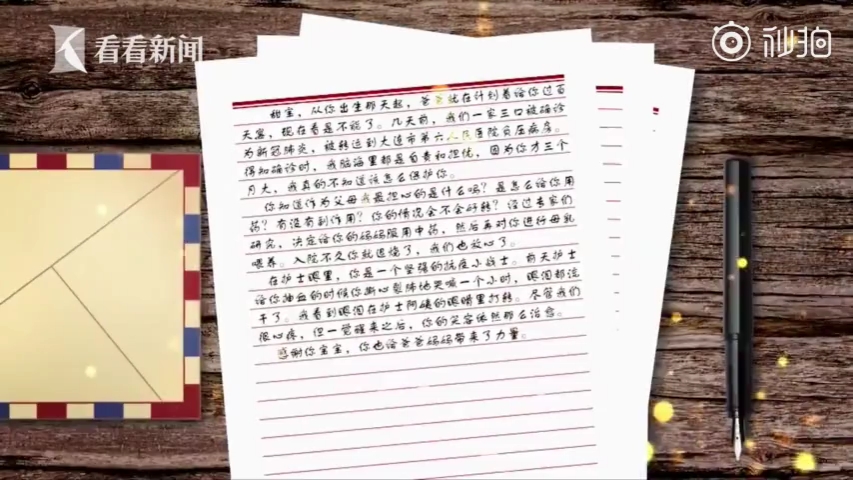 看看新闻
秒拍
甜宝，从你出生那天起，爸爸就在计划着给你过百
天宴，现在看是不能了。几天前，我们一家三口被确诊
为新冠肺炎，被转运到大连市第六人民医院负压病房。
得知确诊时，我脑海里都是自责和担忧，因为你才三个
月大，我真的不知道该怎么保护你。
你知道作为父母我最担心的是什么吗？是怎么给你用
药？有没有副作用？你的情况会不会好转？经过专家们
研究，决定给你的妈妈服用中药，然后再对你进行母乳
喂养。入院不久你就退烧了，我们也放心了。
在护士眼里，你是一个坚强的抗疫小战士。前天护士
给你抽血的时候你撕心裂肺地哭喊一个小时，眼泪都流
干了。我看到眼泪在护士阿姨的眼睛里打转。尽管我们
很心疼，但一觉醒来之后，你的笑容依然那么治愈。
感谢你宝宝，你也给爸爸妈妈带来了力量。